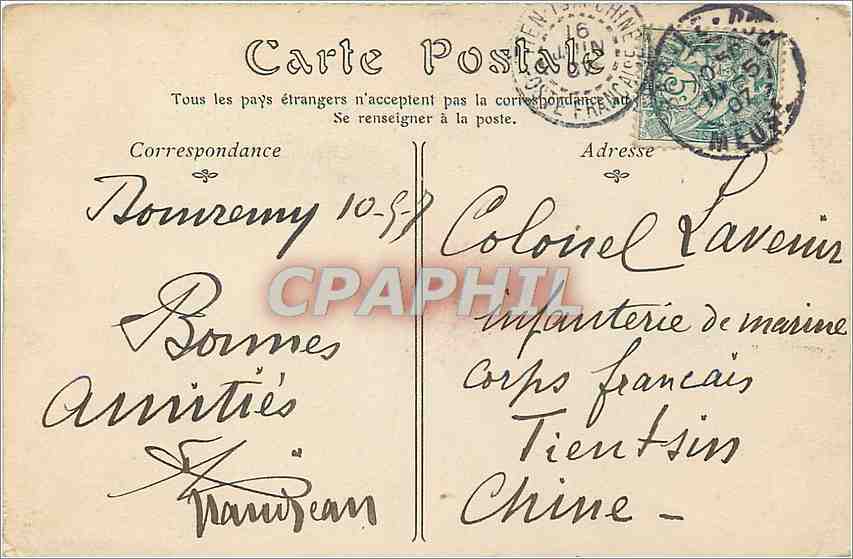 Carte Postale
Tous les pays étrangers n'acceptent pas la correspondance au
Se renseigner à la poste.
Correspondance
Adresse
16
JUIN
07
5c
MEUSE
07
Domremy 10-5-7
Bonnes
amitiés
Colonel Lavenir
infanterie de marine
corps francais
Tientsin
Chine -
CPAPHIL